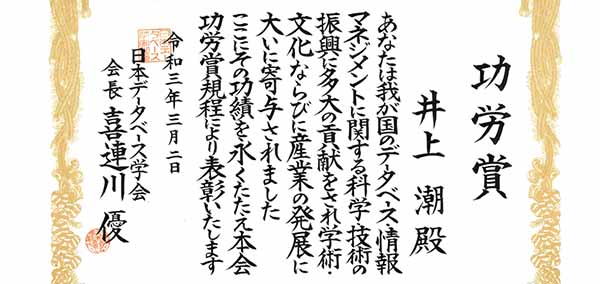 功労賞
井上 潮殿
あなたは我が国のデータベース・情報
マネジメントに関する科学・技術の
振興に多大の貢献をされ学術・
文化ならびに産業の発展に
大いに寄与されました
ここにその功績を永くたたえ本会
功労賞規程により表彰いたします
令和三年三月二日
日本データベース学会
会長 喜連川 優